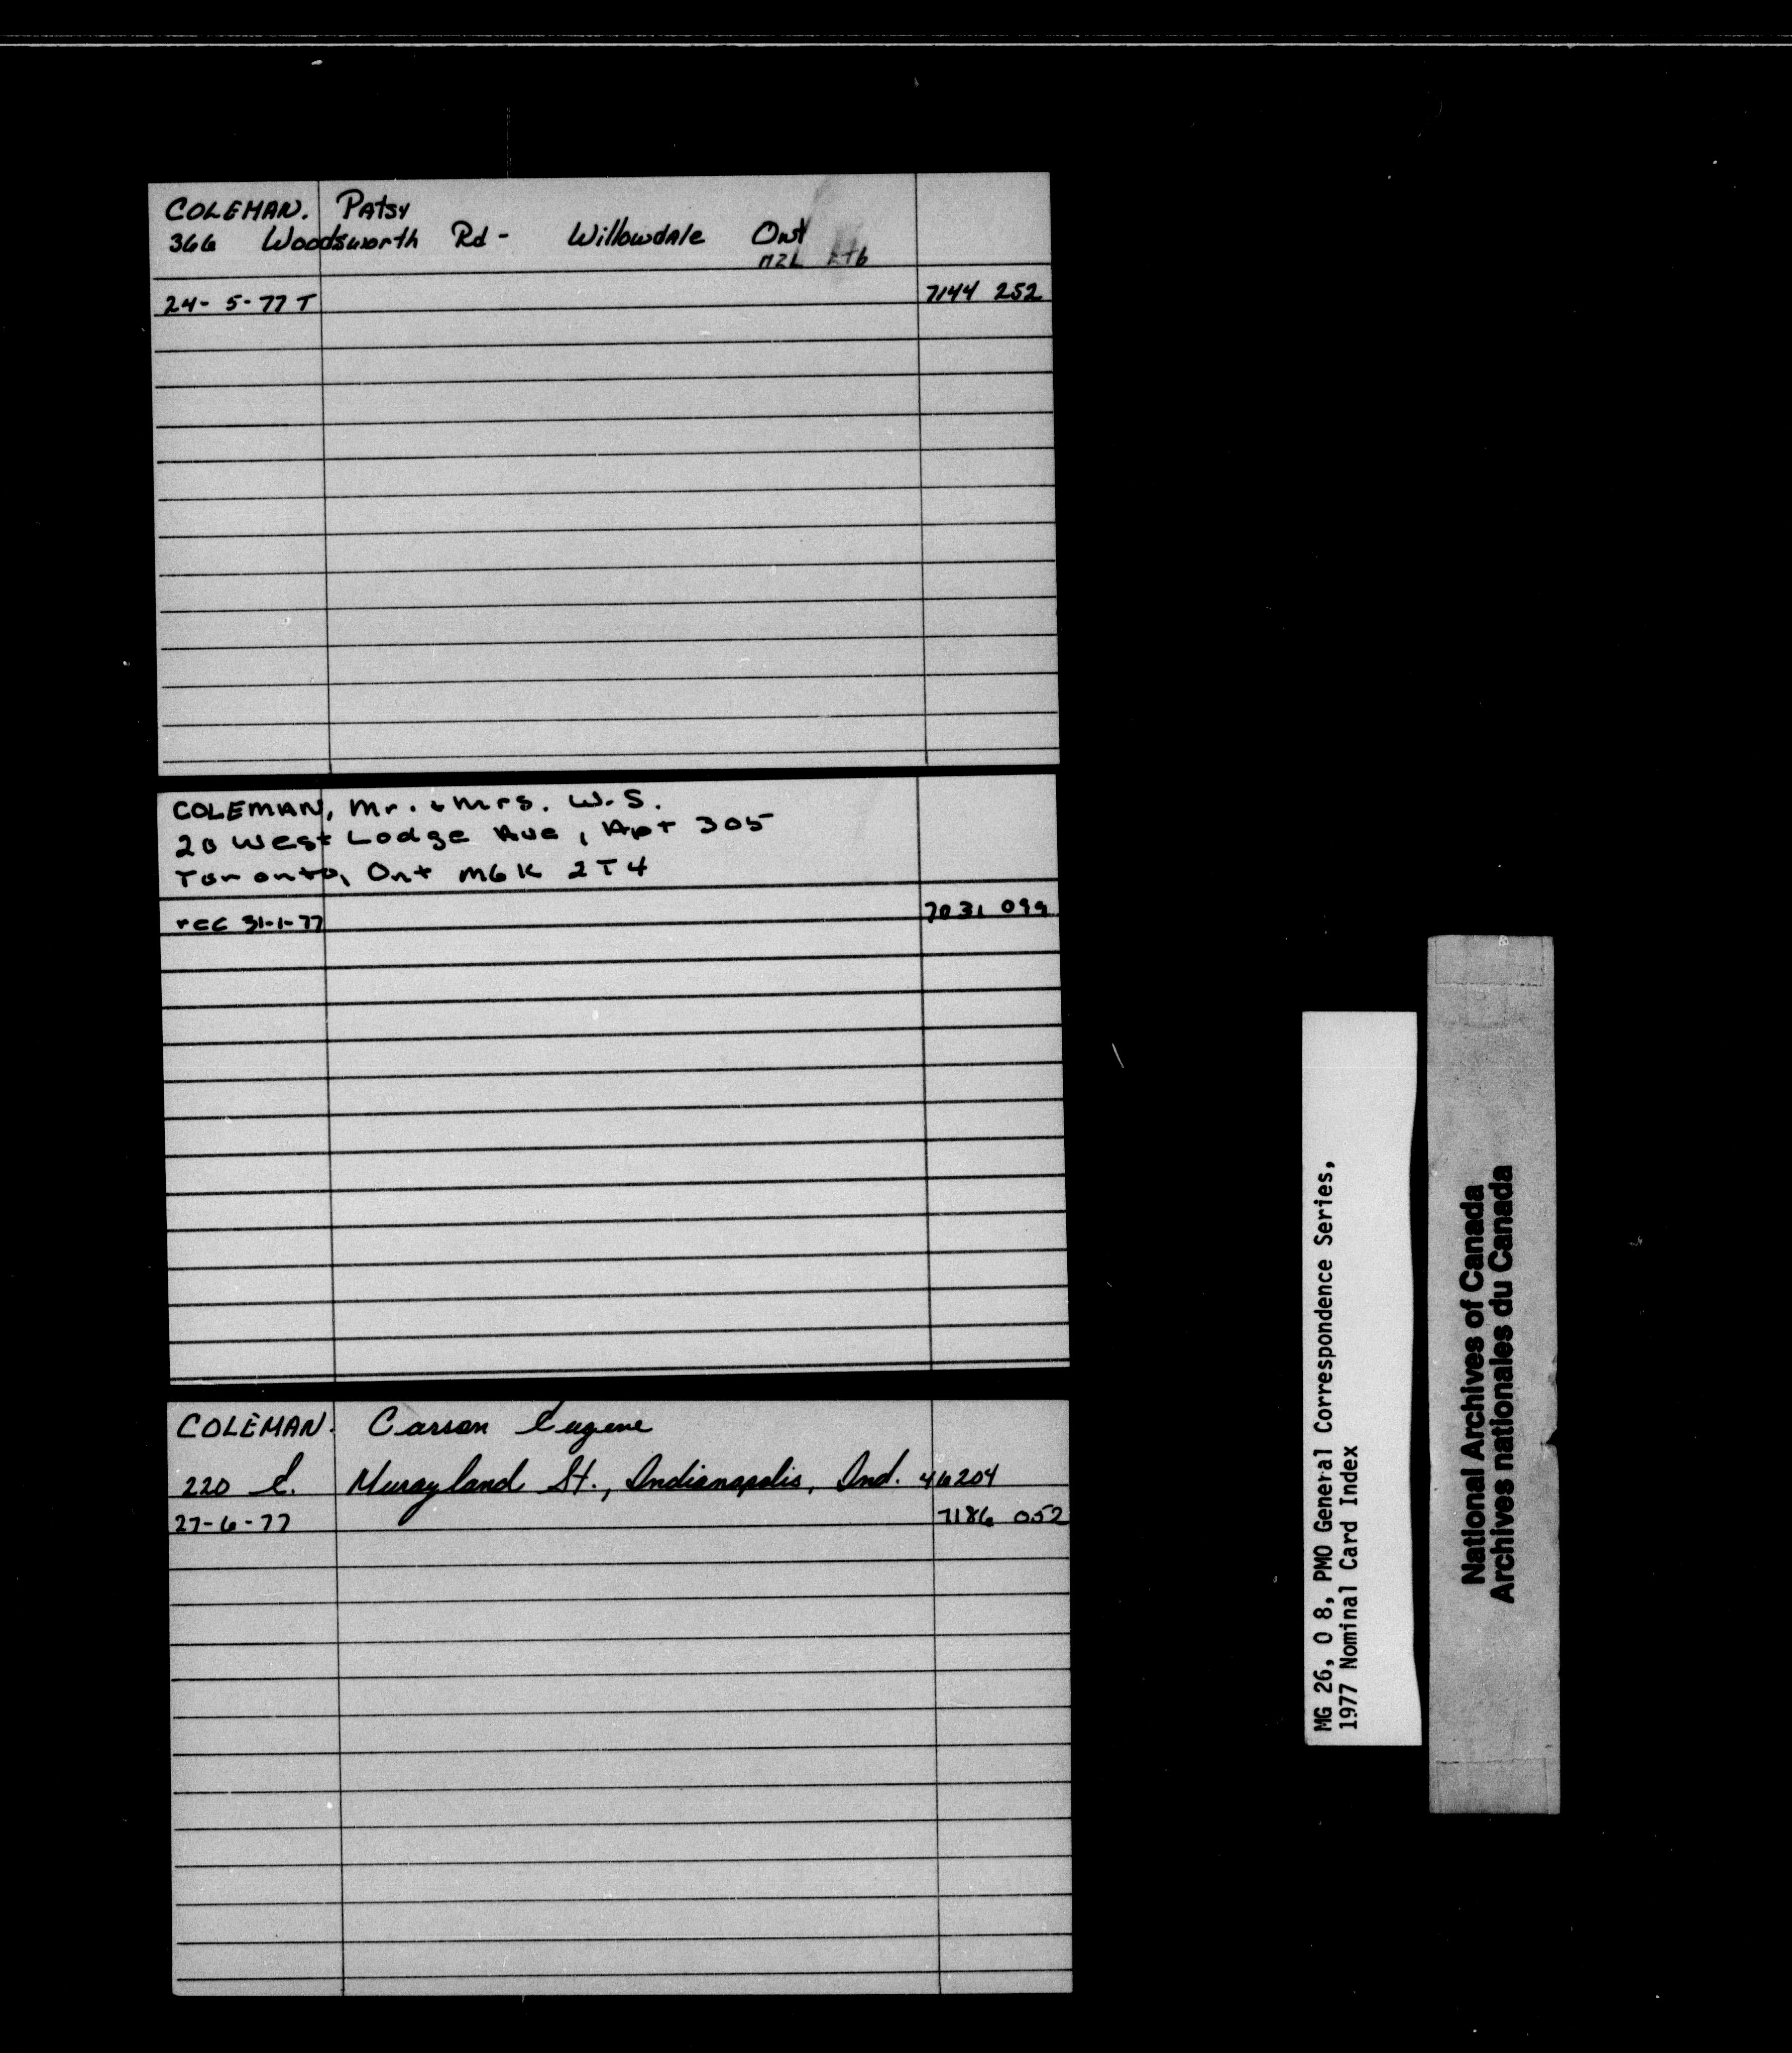 COLEMAN. Patsy
366 Woodsworth Rd - Willowdale Ont
M2L 2T6
24- 5-77 T 7144 252
COLEMAN, Mr. & Mrs. W.S.
20 West Lodge Ave, Apt 305
Toronto, Ont M6K 2T4
rec 31-1-77 7031 099
COLEMAN. Carson Eugene
220 E. Murayland St., Indianapolis, Ind. 46204
27-6-77 7186 052
MG 26, O 8, PMO General Correspondence Series,
1977 Nominal Card Index
National Archives of Canada
Archives nationales du Canada